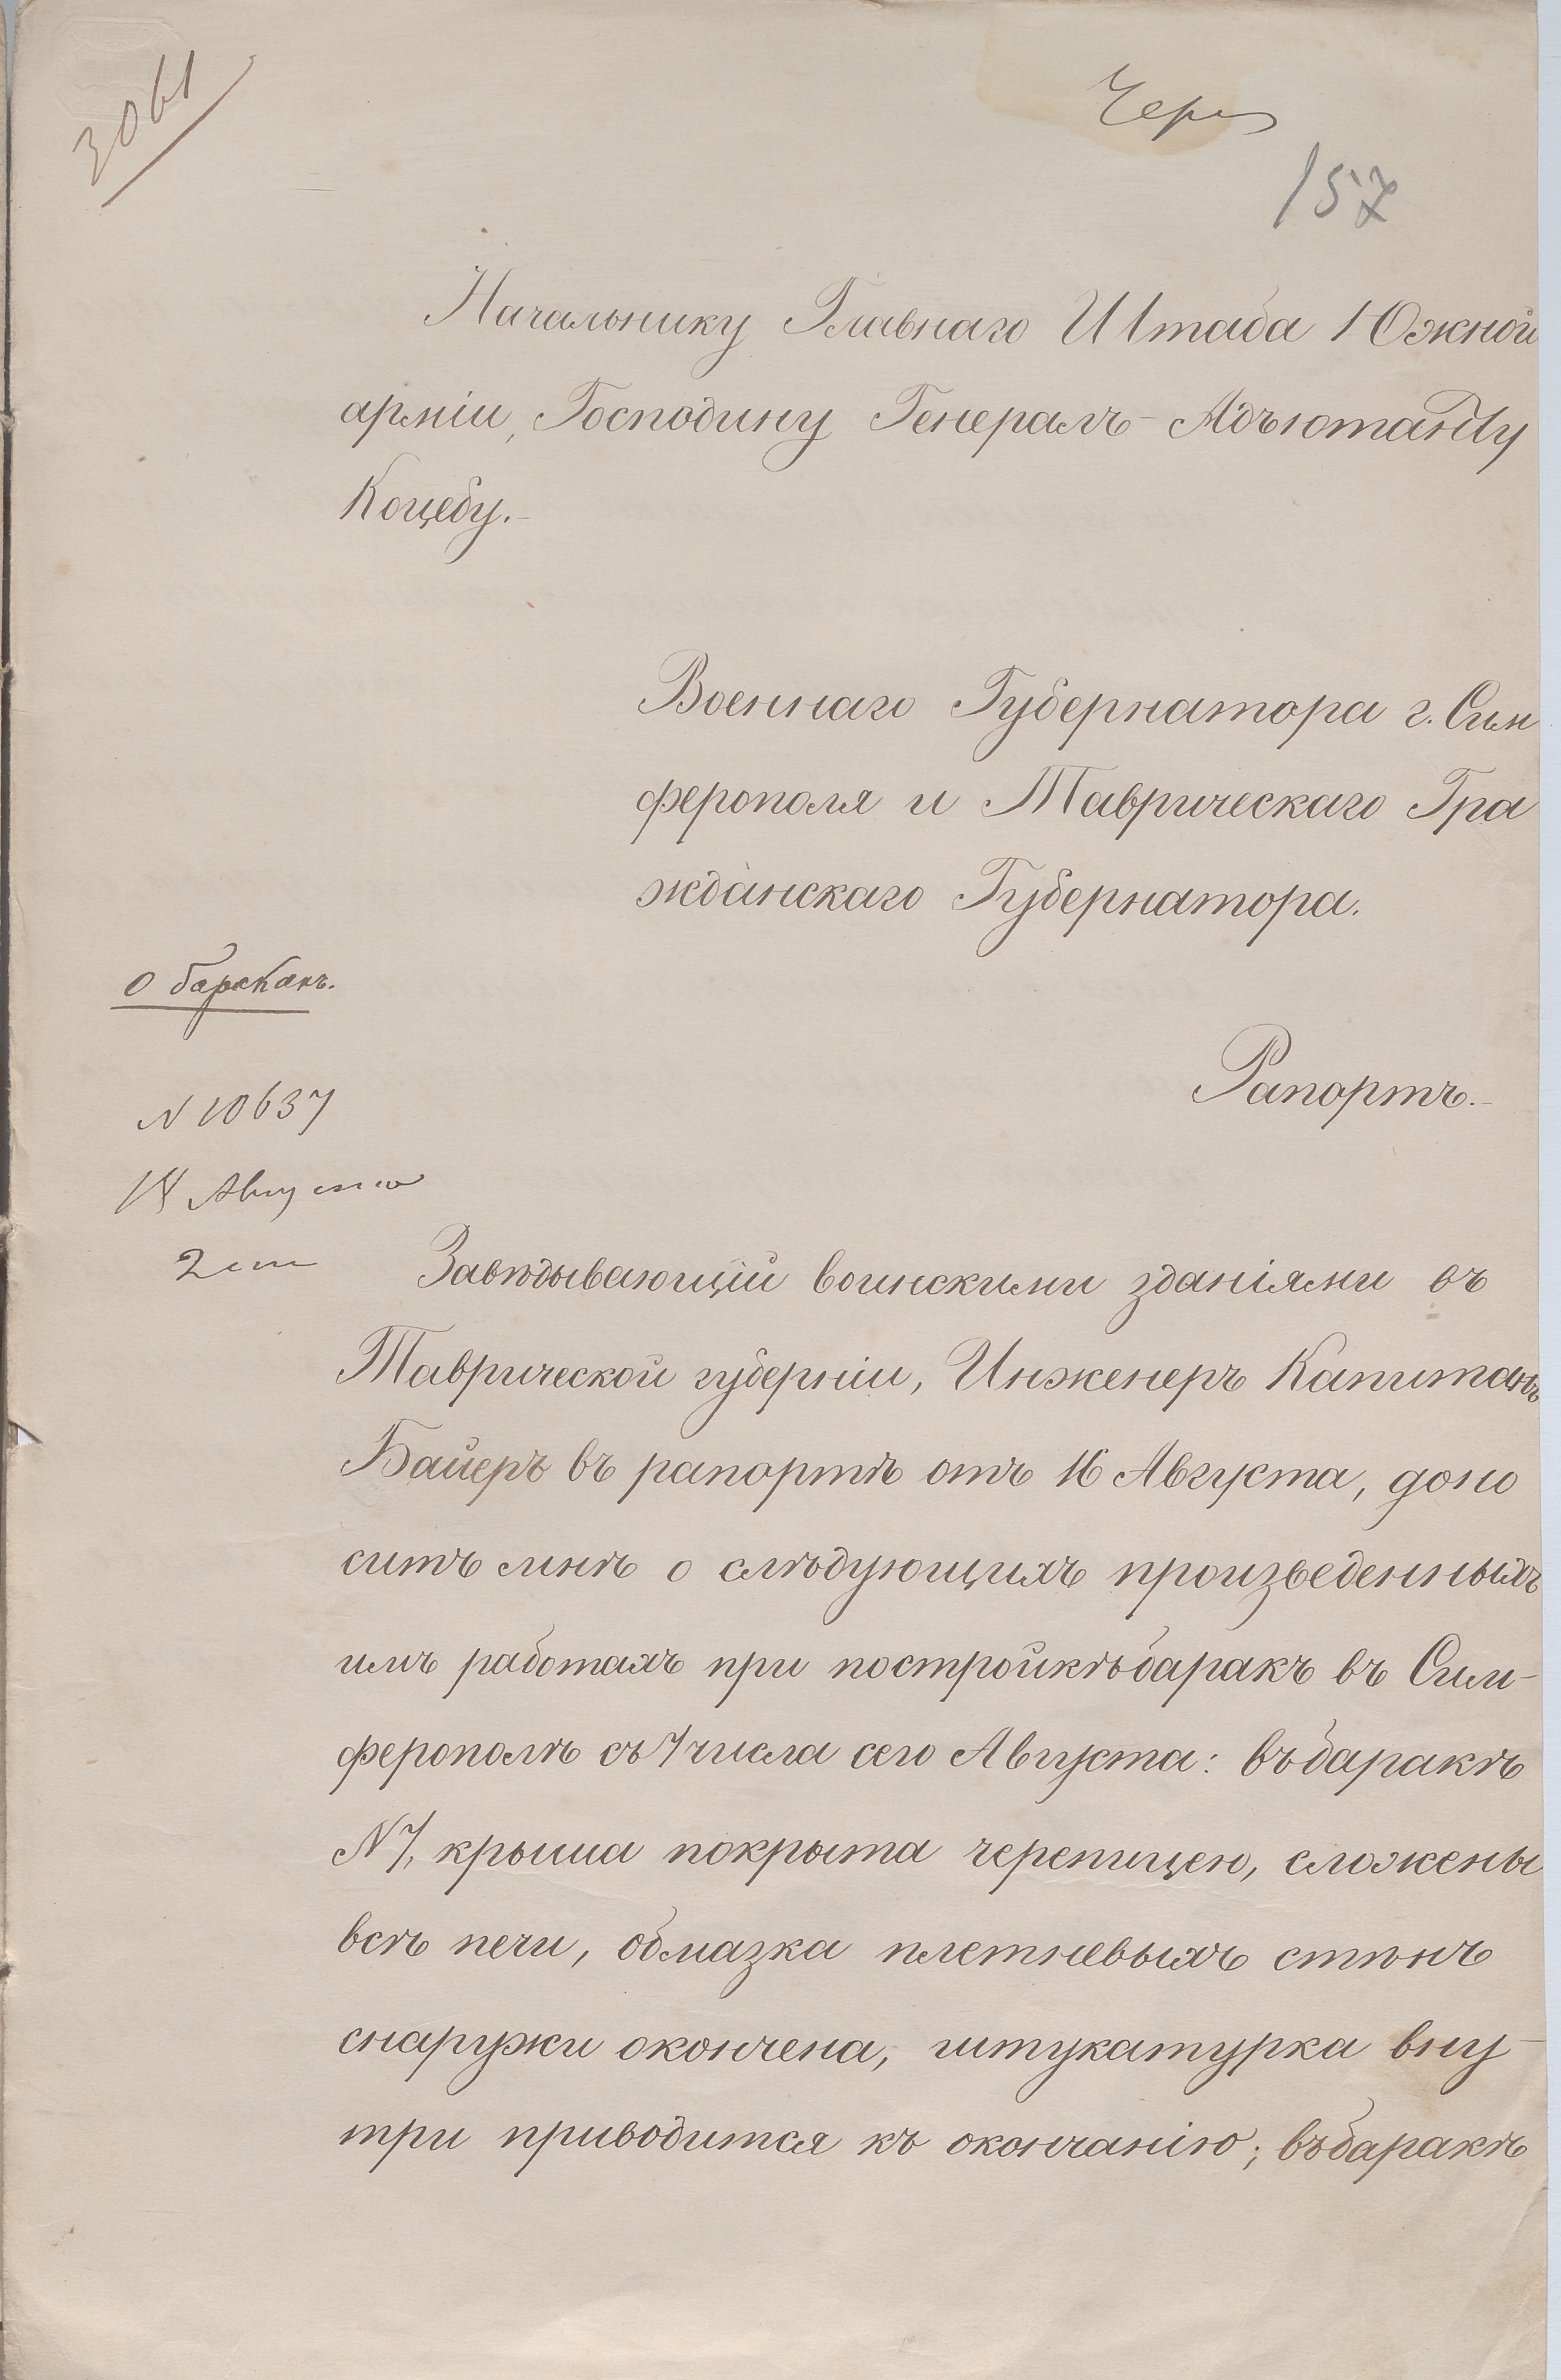 3061
157
Начальнику Главнаго Штаба Южной
арміи, Господину Генералъ-Адъютанту
Коцебу.-
Военнаго Губернатора г. Сим
ферополя и Таврическаго Гра
жданскаго Губернатора.
О баракахъ.
Рапортъ.-
N 10637
18 Августа
Завѣдывающій воинскими зданіями въ
Таврической губерніи, Инженеръ Капитанъ
Байеръ въ рапортѣ отъ 16 Августа, доно
ситъ мнѣ о слѣдующихъ произведенныхъ
имъ работахъ при постройкѣ баракъ въ Сим-
ферополѣ съ 7 числа сего Августа: въ баракѣ
N 7, крыша покрыта черепицею, сложены
всѣ печи, обмазка плетневыхъ стѣнъ
снаружи окончена, штукатурка вну-
три приводится къ окончанію; въ баракѣ